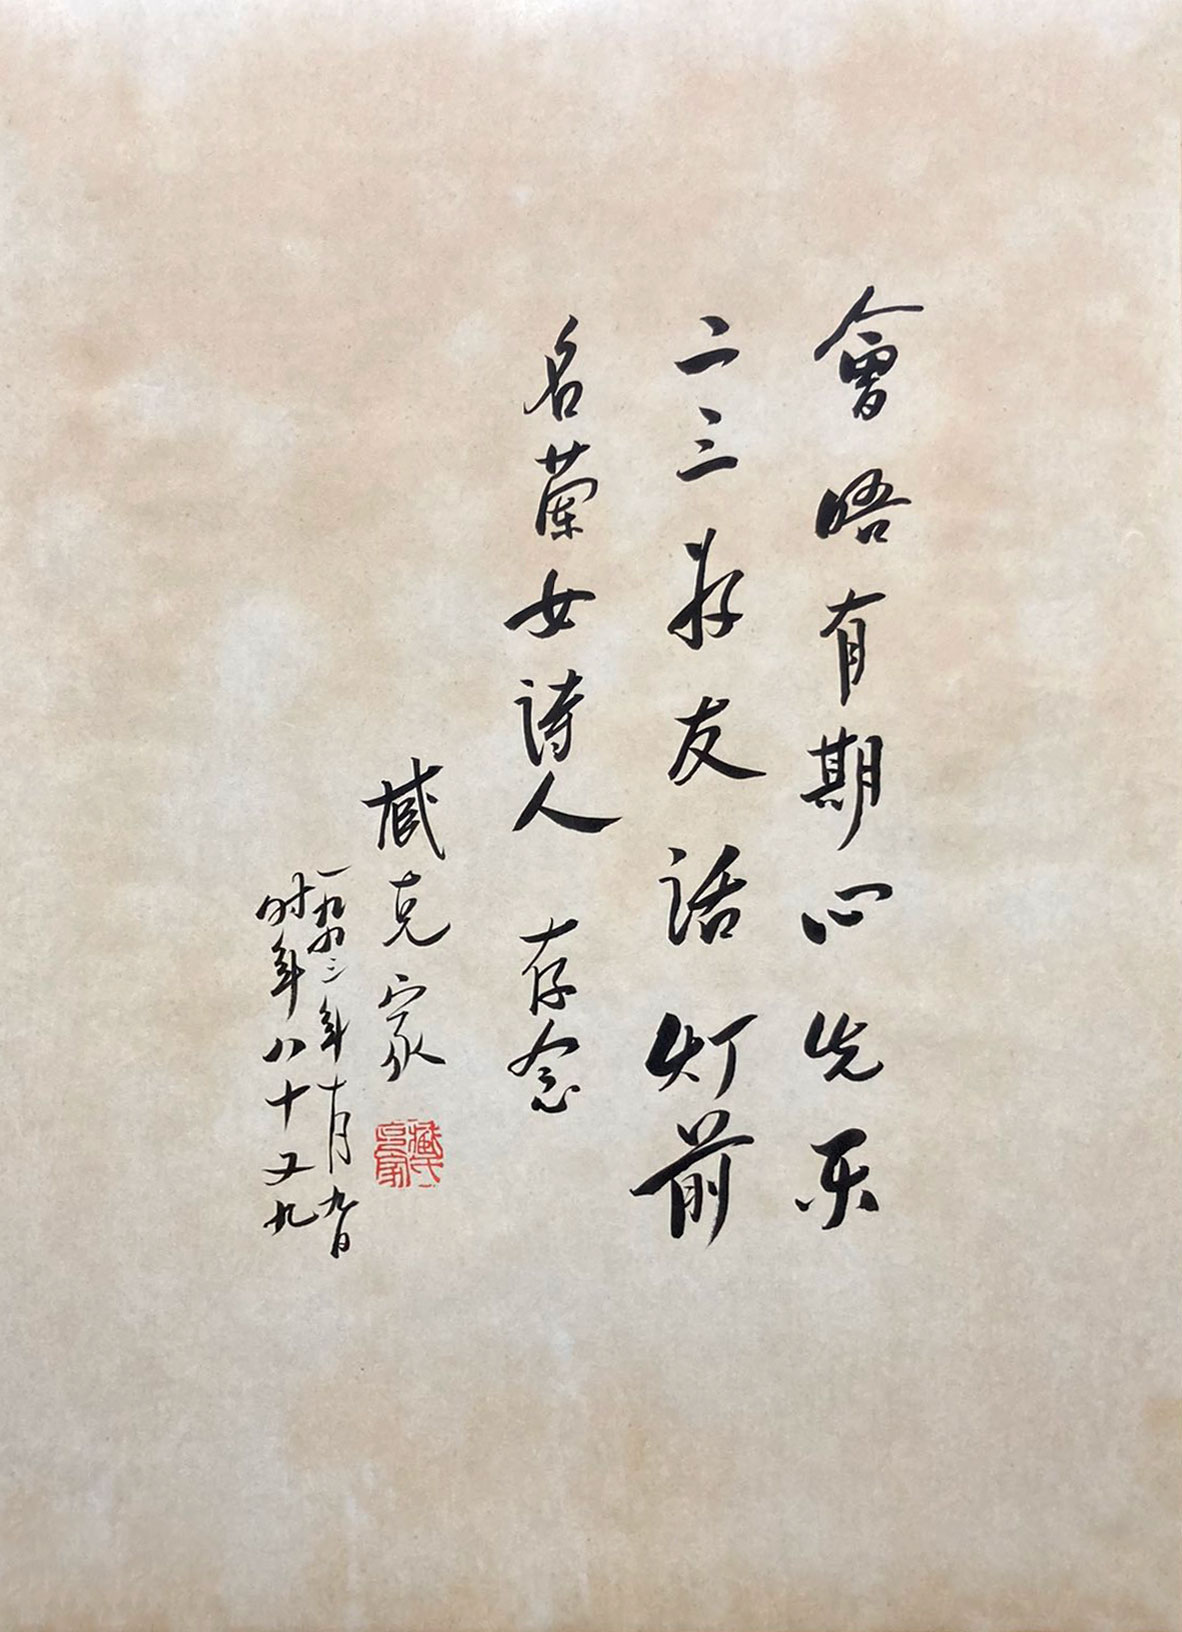 會晤有期心先乐
二三好友话灯前
名蘭女诗人 存念
臧克家
一九九三年十月九日
时年八十又九